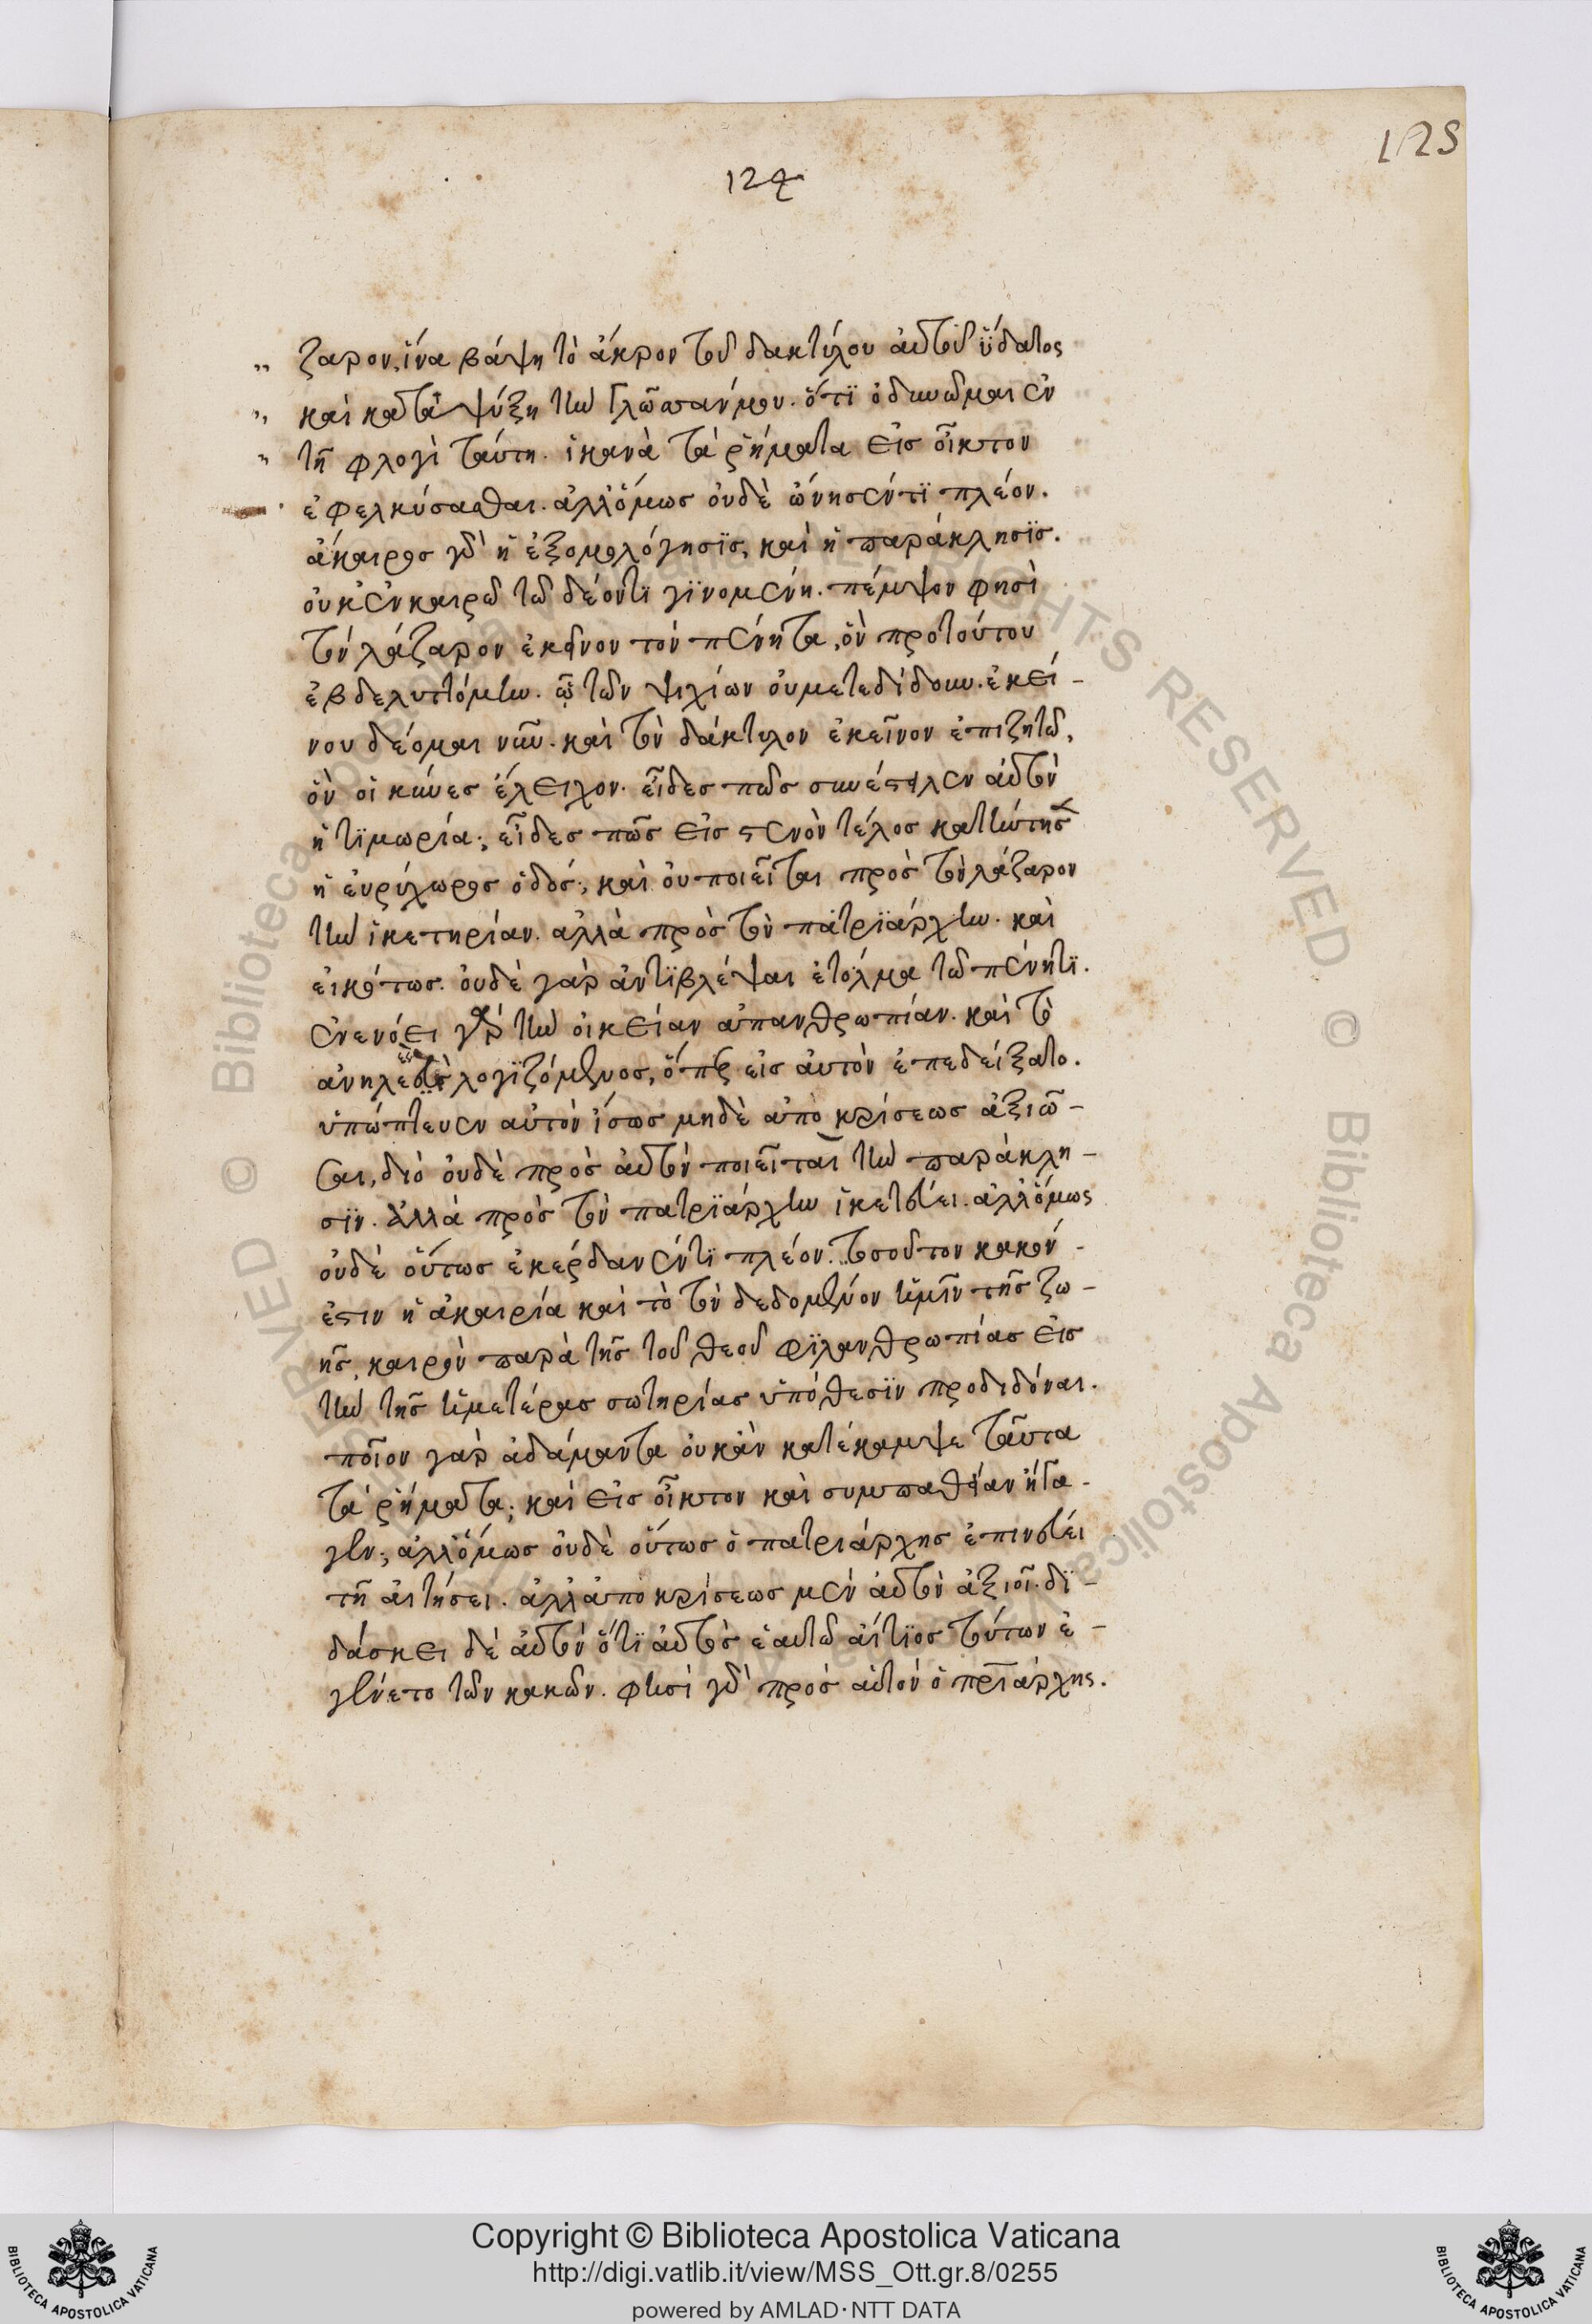 125
124
ζαρον, ἵνα βάψη τὸ ἄκρον τοῦ δακτύλου αὐτοῦ ὕδατος
καὶ καταψύξη τὴν γλῶσσαν μου. ὅτι ὀδυνῶμαι ἐν
τῆ φλογὶ ταύτη. ἱκανὰ τὰ ῥήματα εἰς οἶκτον
ἐφελκύσασθαι. ἀλλ' ὅμως οὐδὲ ὤνησέν τι πλέον.
ἄκαιρος γὰρ ἡ ἐξομολόγησις, καὶ ἡ παράκλησις.
οὐκ ἐν καιρῶ τῶ δέοντι γινομένη. πέμψον φησὶ
τὸν λάζαρον ἐκεῖνον τὸν πένητα, ὃν προτούτου
ἐβδελυττόμην. ᾧ τῶν ψιχίων οὐ μετεδίδουν. ἐκεί-
νου δέομαι νῦν. καὶ τὸν δάκτυλον ἐκεῖνον ἐπιζητῶ,
ὃν οἱ κύνες ἔλειχον. εἶδες πῶς συνέστειλεν αὐτὸν
ἡ τιμωρία; εἶδες πῶς εἰς στενὸν τέλος κατήντησεν
ἡ εὐρύχωρος ὁδός; καὶ οὐ ποιεῖται πρὸς τὸν λάζαρον
τὴν ἱκετηρίαν. ἀλλὰ πρὸς τὸν πατριάρχην. καὶ
εἰκότως. οὐδὲ γὰρ ἀντιβλέψαι ἐτόλμα τῶ πένητι.
ἐνενόει γὰρ τὴν οἰκείαν ἀπανθρωπίαν. καὶ τὸ
ἀνηλεὲς λογιζόμενος, ὅπερ εἰς αὐτὸν ἐπεδείξατο.
ὑπώπτευεν αὐτὸν ἴσως μηδὲ ἀποκρίσεως ἀξιῶ-
σαι, διὸ οὐδὲ πρὸς αὐτὸν ποιεῖται τὴν παράκλη-
σιν. ἀλλὰ πρὸς τὸν πατριάρχην ἱκετεύει. ἀλλ' ὅμως
οὐδὲ οὕτως ἐκέρδανέν τι πλέον. τοσοῦτον κακόν
ἐστιν ἡ ἀκαιρία καὶ τὸ τὸν δεδομένον ἡμῖν τῆς ζω-
ῆς, καιρὸν παρὰ τῆς τοῦ θεοῦ φιλανθρωπίας εἰς
τὴν τῆς ἡμετέρας σωτηρίας ὑπόθεσιν προδιδόναι.
ποῖον γὰρ ἀδάμαντα οὐκ ἂν κατέκαμψε ταῦτα
τὰ ῥήματα; καὶ εἰς οἶκτον καὶ συμπαθείαν ἤγα-
γεν; ἀλλ' ὅμως οὐδὲ οὕτως ὁ πατριάρχης ἐπινεύει
τῆ αἰτήσει. ἀλλ' ἀποκρίσεως μὲν αὐτὸν ἀξιοῖ. δι-
δάσκει δὲ αὐτὸν ὅτι αὐτὸς ἑαυτῶ αἴτιος τούτων ἐ-
γένετο τῶν κακῶν. φησὶ γὰρ πρὸς αὐτὸν ὁ πριάρχης.
© Biblioteca Apostolica Vaticana ALL RIGHTS RESERVED
Copyright © Biblioteca Apostolica Vaticana
http://digi.vatlib.it/view/MSS_Ott.gr.8/0255
powered by AMLAD·NTT DATA
BIBLIOTECA APOSTOLICA VATICANA
BIBLIOTECA APOSTOLICA VATICANA